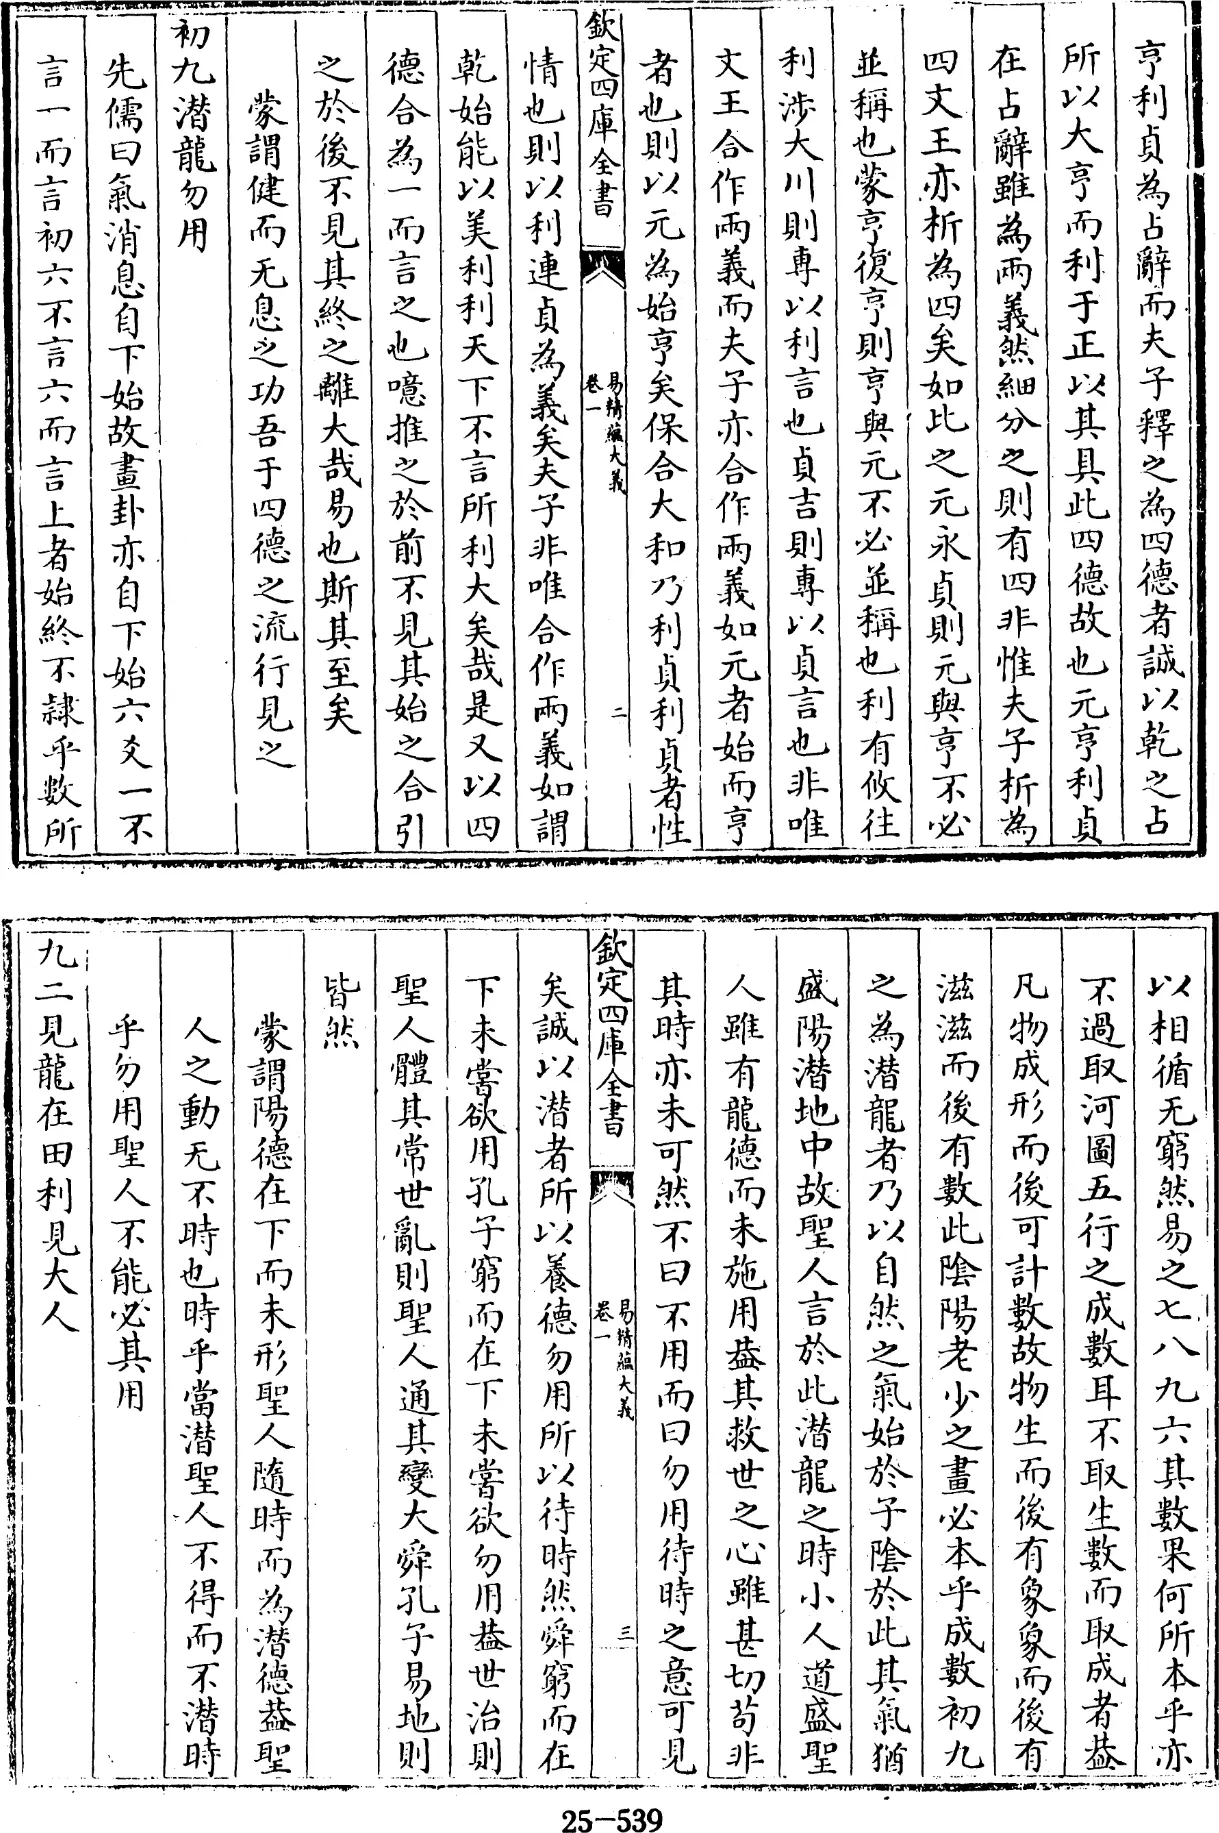 亨利貞為占辭而夫子釋之為四德者誠以乾之占
所以大亨而利于正以其具此四德故也元亨利貞
在占辭雖為兩義然細分之則有四非惟夫子析為
四文王亦析為四矣如比之元永貞則元與亨不必
並稱也蒙亨復亨則亨與元不必並稱也利有攸往
利涉大川則專以利言也貞吉則專以貞言也非唯
文王合作兩義而夫子亦合作兩義如元者始而亨
者也則以元為始亨矣保合大和乃利貞利貞者性
欽定四庫全書
易精蘊大義
卷一
二
情也則以利連貞為義矣夫子非唯合作兩義如謂
乾始能以美利利天下不言所利大矣哉是又以四
德合為一而言之也噫推之於前不見其始之合引
之於後不見其終之離大哉易也斯其至矣
蒙謂健而无息之功吾于四德之流行見之
初九潜龍勿用
先儒曰氣消息自下始故畫卦亦自下始六爻一不
言一而言初六不言六而言上者始終不隸乎數所
以相循无窮然易之七八九六其數果何所本乎亦
不過取河圖五行之成數耳不取生數而取成者葢
凡物成形而後可計數故物生而後有象象而後有
滋滋而後有數此陰陽老少之畫必本乎成數初九
之為潜龍者乃以自然之氣始於子陰於此其氣猶
盛陽潜地中故聖人言於此潜龍之時小人道盛聖
人雖有龍德而未施用葢其救世之心雖甚切苟非
其時亦未可然不曰不用而曰勿用待時之意可見
欽定四庫全書
易精蘊大義
卷一
三
矣誠以潜者所以養德勿用所以待時然舜窮而在
下未嘗欲用孔子窮而在下未嘗欲勿用葢世治則
聖人體其常世亂則聖人通其變大舜孔子易地則
皆然
蒙謂陽德在下而未形聖人隨時而為潜德葢聖
人之動无不時也時乎當潜聖人不得而不潜時
乎勿用聖人不能必其用
九二見龍在田利見大人
25-539